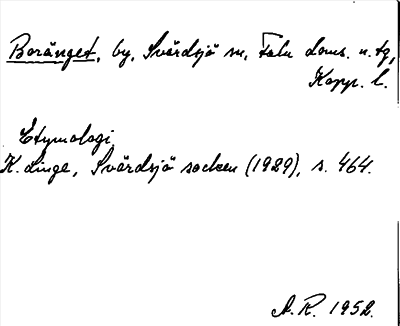 Boränget, by, Svärdsjö sn, Falu doms. n. tg,
Kopp. l.
Etymologi
K. Linge, Svärdsjö socken (1929), s. 464.
A. R. 1952.